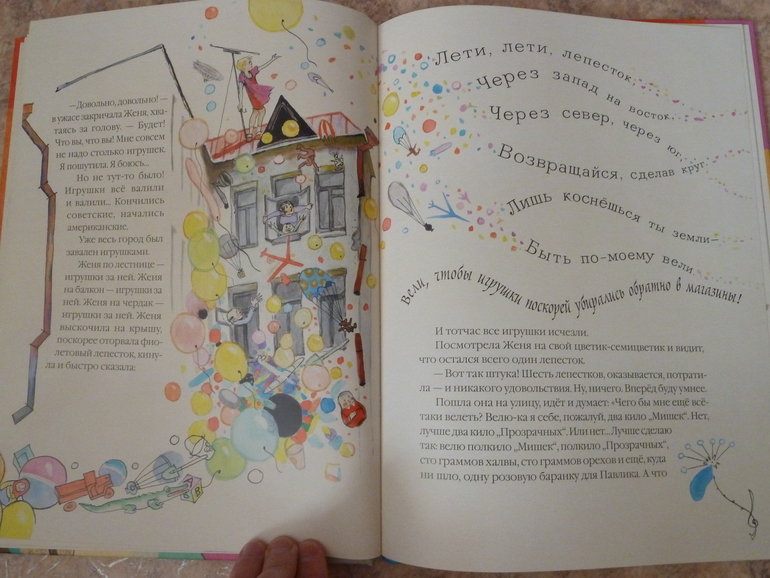 — Довольно, довольно! —
в ужасе закричала Женя, хва-
таясь за голову. — Будет!
Что вы, что вы! Мне совсем
не надо столько игрушек.
Я пошутила. Я боюсь...
Но не тут-то было!
Игрушки всё валили
и валили... Кончились
советские, начались
американские.
Уже весь город был
завален игрушками.
Женя по лестнице —
игрушки за ней. Женя
на балкон — игрушки за
ней. Женя на чердак —
игрушки за ней. Женя
выскочила на крышу,
поскорее оторвала фио-
летовый лепесток, кину-
ла и быстро сказала:
Лети, лети, лепесток,
Через запад на восток,
Через север, через юг,
Возвращайся, сделав круг.
Лишь коснёшься ты земли—
Быть по-моему вели.
Вели, чтобы игрушки поскорей убирались обратно в магазины!
И тотчас все игрушки исчезли.
Посмотрела Женя на свой цветик-семицветик и видит,
что остался всего один лепесток.
— Вот так штука! Шесть лепестков, оказывается, потрати-
ла — и никакого удовольствия. Ну, ничего. Вперёд буду умнее.
Пошла она на улицу, идёт и думает: «Чего бы мне ещё всё-
таки велеть? Велю-ка я себе, пожалуй, два кило „Мишек“. Нет,
лучше два кило „Прозрачных“. Или нет... Лучше сделаю
так: велю полкило „Мишек“, полкило „Прозрачных“,
сто граммов халвы, сто граммов орехов и ещё, куда
ни шло, одну розовую баранку для Павлика. А что